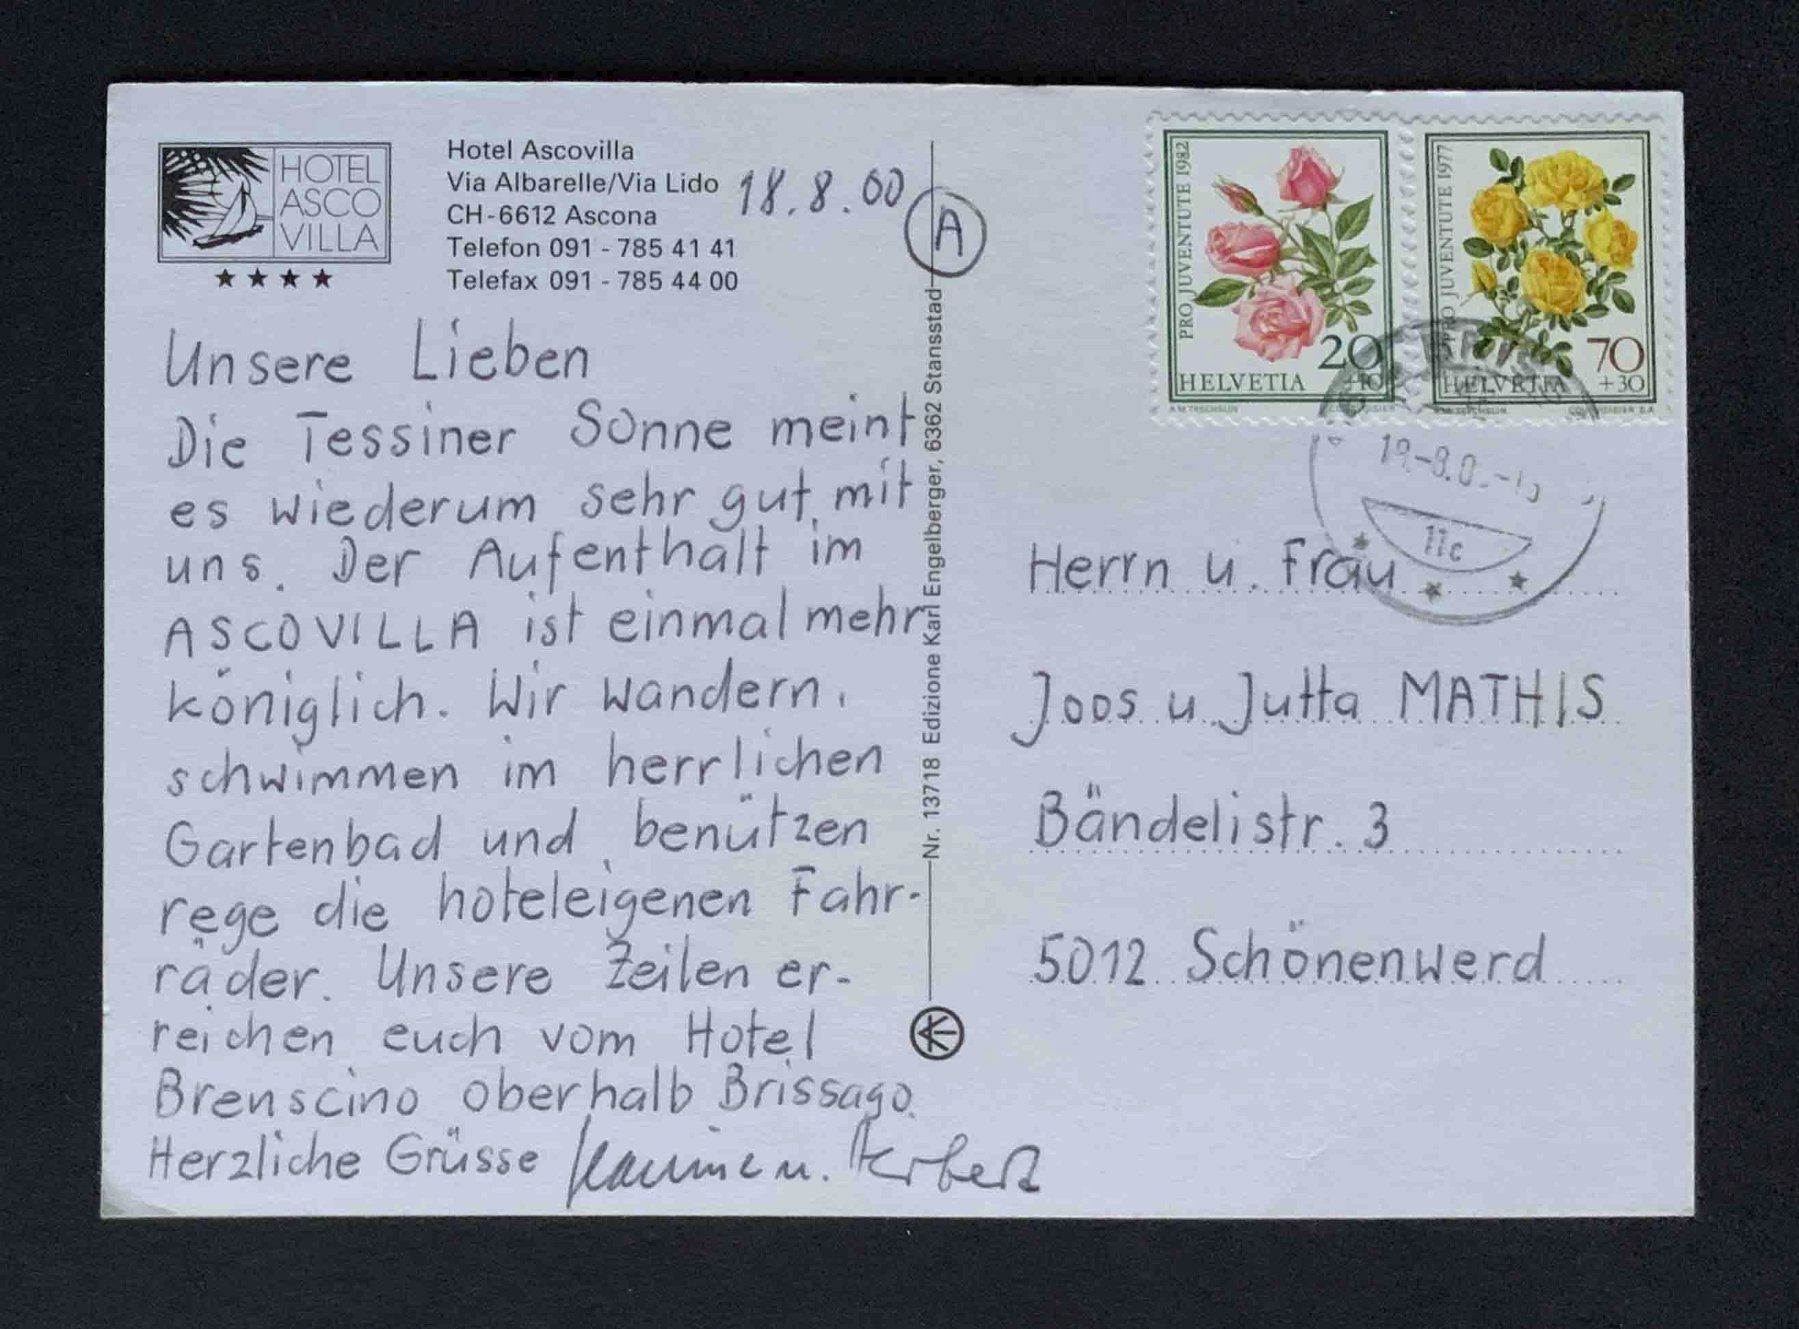 HOTEL
ASCO
VILLA
Hotel Ascovilla
Via Albarelle/Via Lido
CH-6612 Ascona
Telefon 091 - 785 41 41
Telefax 091 - 785 44 00
18.8.00
A
Unsere Lieben
Die Tessiner Sonne meint
es wiederum sehr gut mit
uns. Der Aufenthalt im
ASCOVILLA ist einmal mehr
königlich. Wir wandern,
schwimmen im herrlichen
Gartenbad und benützen
rege die hoteleigenen Fahr-
räder. Unsere Zeilen er-
reichen euch vom Hotel
Brenscino oberhalb Brissago.
Herzliche Grüsse u. Herbert
Nr. 13718 Edizione Karl Engelberger, 6362 Stansstad
PRO JUVENTUTE 1982
20
+10
HELVETIA
PRO JUVENTUTE 1977
70
+30
HELVETIA
11c
Herrn u. Frau
Joos u. Jutta MATHIS
Bändelistr. 3
5012 Schönenwerd